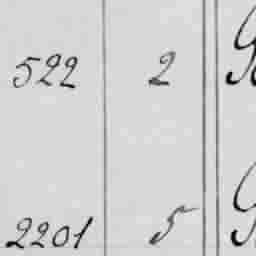 522 2
2201 5